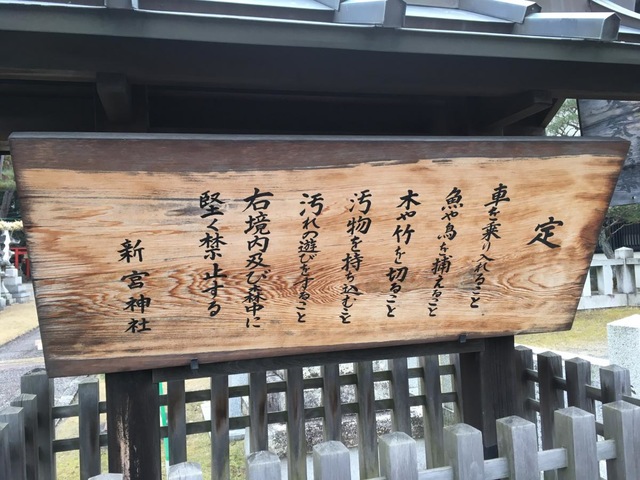 定
車を乗り入れること
魚や鳥を捕えること
木や竹を切ること
汚物を持ち込むこと
汚れの遊びをすること
右境内及び森中に
堅く禁止する
新宮神社